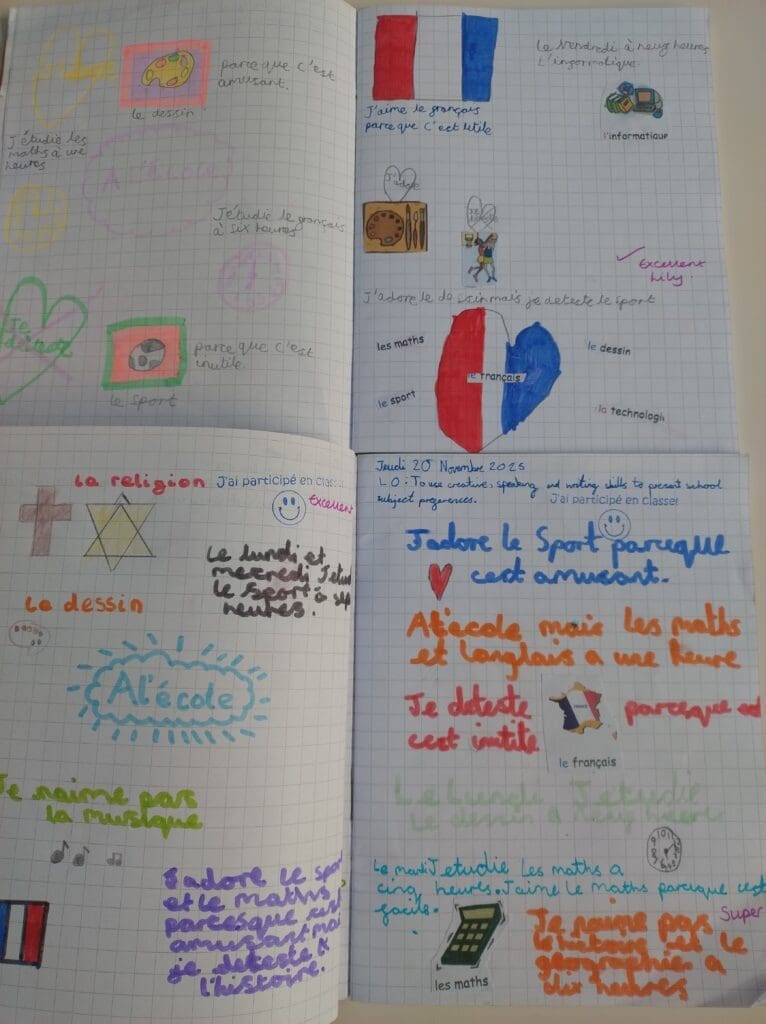 parce que c'est
amusant.
le dessin
J'étudie les
maths à une
heures
A l'école
J'étudie le français
à six heures
Je
deteste
parce que c'est
inutile.
le sport
J'aime le français
parce que c'est utile
Le Vendredi à neuf heures
L'informatique
l'informatique
J'adore
✓ Excellent
Lily.
J'adore le dessin mais je deteste le sport
les maths
le dessin
le français
le sport
la technologi
La religion
J'ai participé en classe!
Excellent
Le lundi et
mercredi J'etud
le sport à
heures.
La dessin
A l'école
Je naime pas
la musique
J'adore le sport
et le maths
parcesque est
amusant mai
je deteste
l'histoire.
Jeudi 20 Novembre 2025
LO: To use creative, speaking and writing skills to present school
subject preferences.
J'ai participé en classe!
J'adore le Sport parceque
cest amusant.
At'ecole mais les maths
et Langlais a une heure
Je deteste
parceque est
cest inutile
FRANCE
le français
Le Lundi Jetudie
le dessin a neuf heure
Le mardi Jetudie Les maths a
cinq heures. J'aime le maths parceque cest
facile.
Super
Je naime pas
le histoire et le
géographie a
six heures
les maths